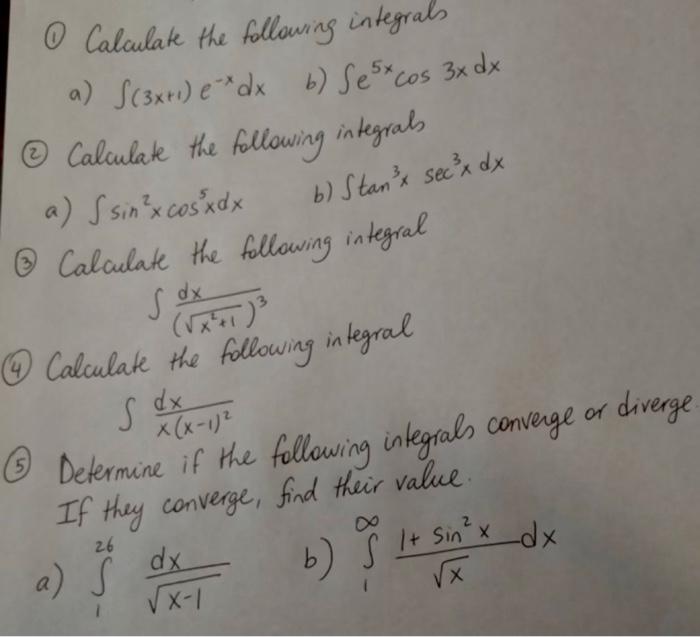 ① Calculate the following integrals
a) ∫(3x+1) e^{-x} dx b) ∫e^{5x} cos 3x dx
② Calculate the following integrals
a) ∫ sin²x cos⁵x dx b) ∫tan³x sec³x dx
③ Calculate the following integral
∫ dx/(√(x²+1))³
④ Calculate the following integral
∫ dx/(x(x-1)²)
⑤ Determine if the following integrals converge or diverge.
If they converge, find their value.
a) ∫₁²⁶ dx/√(x-1) b) ∫₁^∞ (1+ sin²x)/√x dx